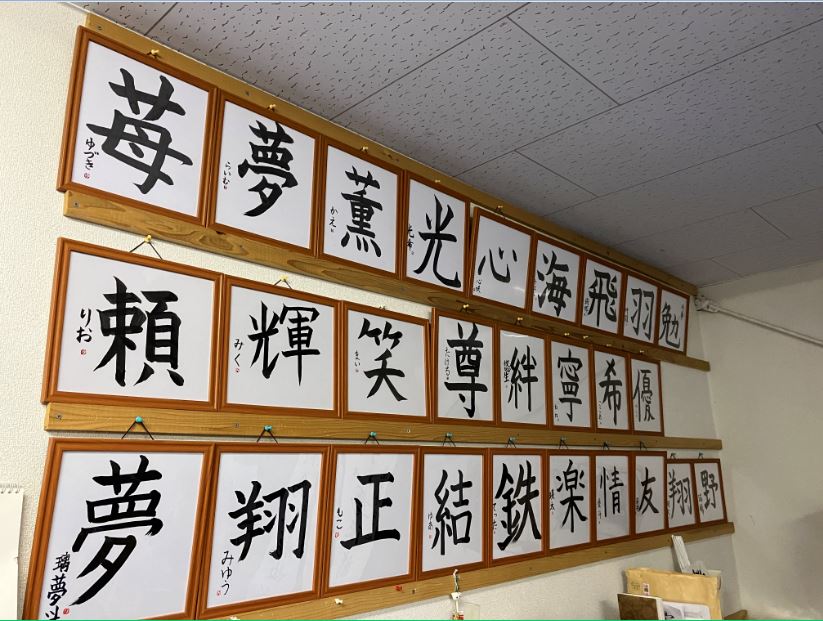 苺 ゆづき
夢 らいむ
薫 かえ
光
心
海
飛
羽
勉
頼 りお
輝 みく
笑 まい
尊 たけるこ
絆
寧
希
優
夢 璃夢斗
翔 みゆう
正 もこ
結 ゆあ
鉄 てった
楽
情
友
翔
野